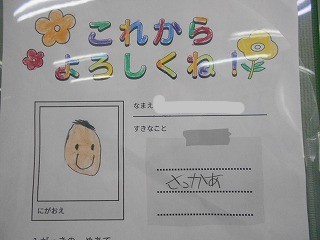 これから
よろしくね!
なまえ
すきなこと
さっかあ
にがおえ